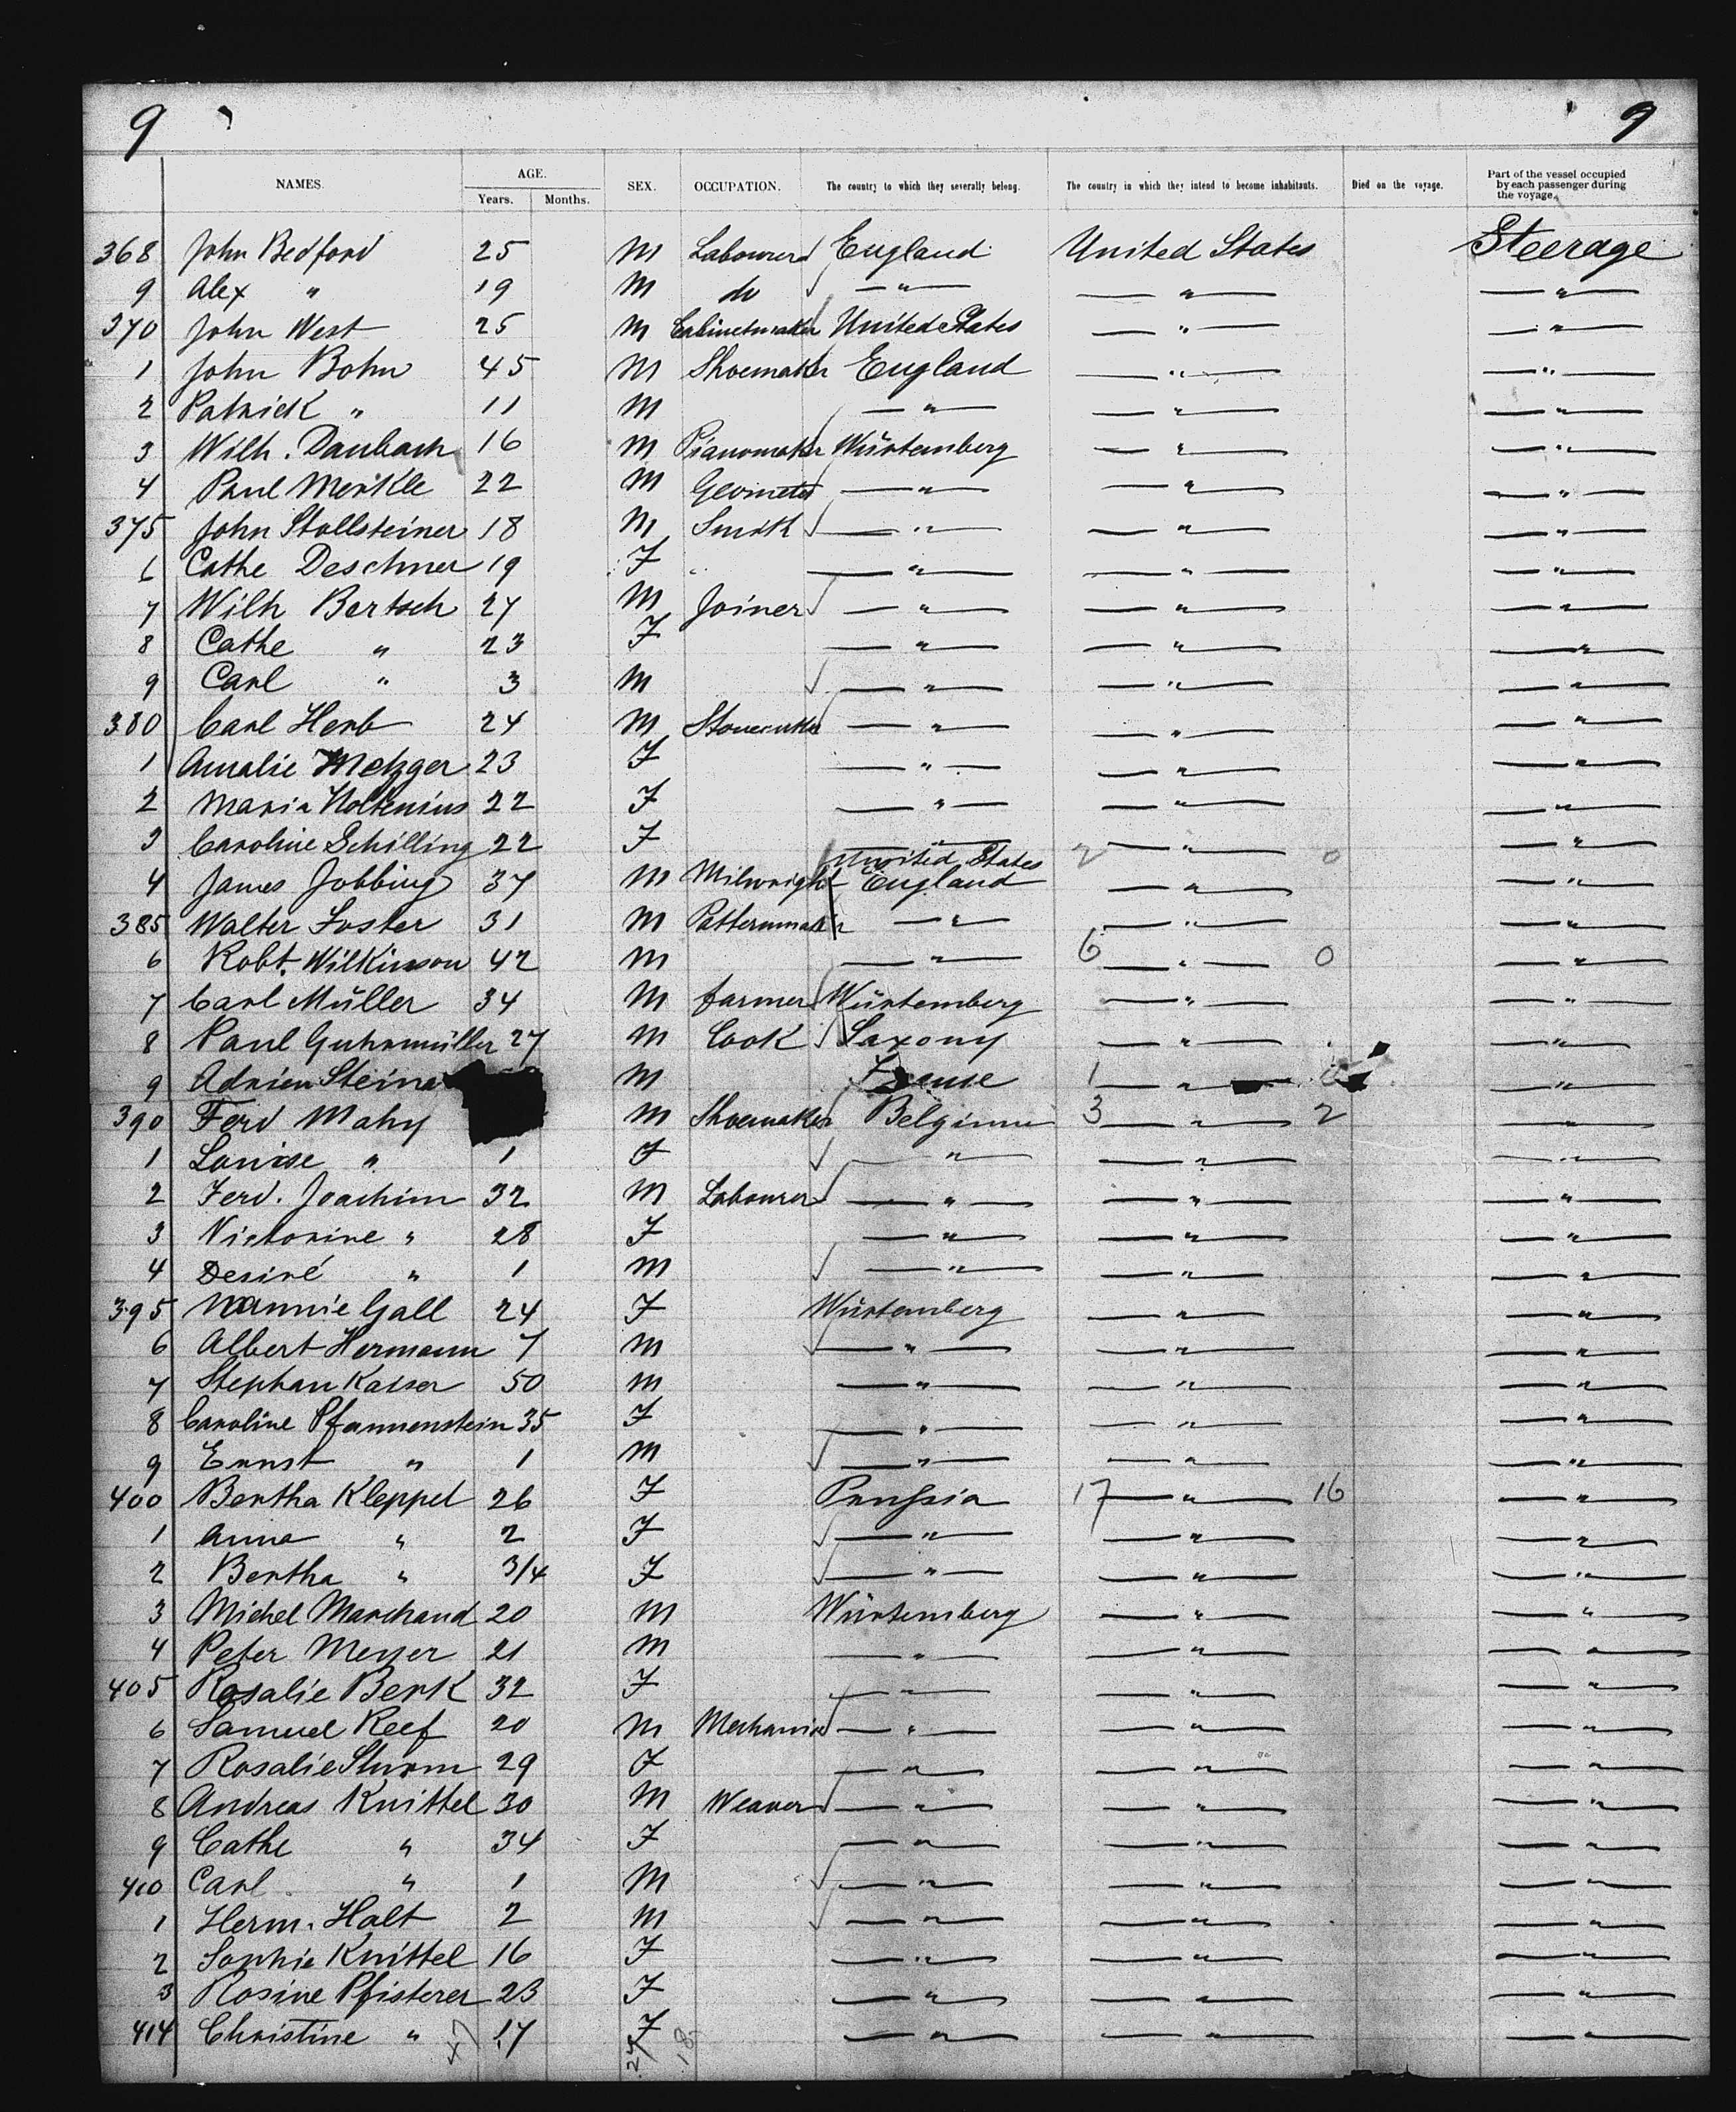 9 9
NAMES. AGE. Years. Months. SEX. OCCUPATION. The country to which they severally belong. The country in which they intend to become inhabitants. Died on the voyage. Part of the vessel occupied by each passenger during the voyage.
368 John Bedford 25 M Labourer England United States Steerage
9 Alex " 19 M do — " — — " — — " —
370 John West 25 M Cabinetmaker United States — " — — " —
1 John Bohn 45 M Shoemaker England — " — — " —
2 Patrick " 11 M — " — — " — — " —
3 Wilh. Daubach 16 M Pianomaker Würtemberg — " — — " —
4 Paul Merkle 22 M Geometer — " — — " — — " —
375 John Stollsteiner 18 M Smith — " — — " — — " —
6 Cathe Deschner 19 F — " — — " — — " —
7 Wilh Bertsch 27 M Joiner — " — — " — — " —
8 Cathe " 23 F — " — — " — — " —
9 Carl " 3 M — " — — " — — " —
380 Carl Herb 24 M Stonecutter — " — — " — — " —
1 Amalie Metzger 23 F — " — — " — — " —
2 Maria Holtenius 22 F — " — — " — — " —
3 Caroline Schilling 22 F — " — 2 — " — 0 — " —
4 James Jobbing 37 M Milwright United States England — " — — " —
385 Walter Foster 31 M Patternmaker — " — — " — — " —
6 Robt. Wilkinson 42 M — " — 6 — " — 0 — " —
7 Carl Müller 34 M farmer Würtemberg — " — — " —
8 Paul Guhrmüller 27 M Cook Saxony — " — — " —
9 Adrien M France 1 — " — — " —
390 Ferd Mahy M Shoemaker Belgium 3 — " — 2 — " —
1 Louise " 1 F — " — — " — — " —
2 Ferd. Joachim 32 M Labourer — " — — " — — " —
3 Victorine " 28 F — " — — " — — " —
4 Desiré " 1 M — " — — " — — " —
395 Nannie Gall 24 F Würtemberg — " — — " —
6 Albert Hermann 7 M — " — — " — — " —
7 Stephan Kaiser 50 M — " — — " — — " —
8 Caroline Pfannenstein 35 F — " — — " — — " —
9 Ernst " 1 M — " — — " — — " —
400 Bertha Kleppel 26 F Prußsia 17 — " — 16 — " —
1 Anna " 2 F — " — — " — — " —
2 Bertha " 3/4 F — " — — " — — " —
3 Michel Marchand 20 M Würtemberg — " — — " —
4 Peter Meyer 21 M — " — — " — — " —
405 Rosalie Berk 32 F — " — — " — — " —
6 Samuel Reef 20 M Mechanic — " — — " — — " —
7 Rosalie Sturm 29 F — " — — " — — " —
8 Andreas Knittel 30 M Weaver — " — — " — — " —
9 Cathe " 34 F — " — — " — — " —
410 Carl " 1 M — " — — " — — " —
1 Herm. Halt 2 M — " — — " — — " —
2 Sophie Knittel 16 F — " — — " — — " —
3 Rosine Pfisterer 23 F — " — — " — — " —
414 Christine " 17 F — " — — " — — " —